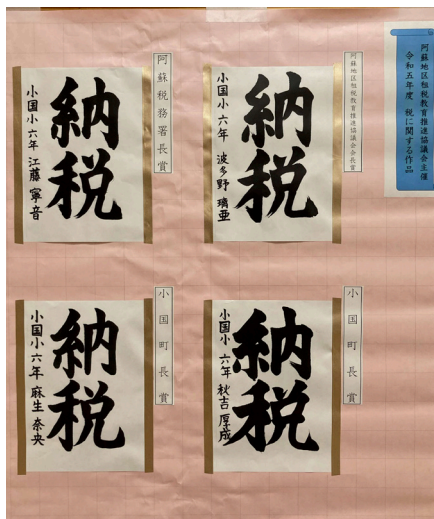 阿蘇地区租税教育推進協議会主催
令和五年度 税に関する作品
阿蘇地区租税教育推進協議会会長賞
納税
小国小 六年 波多野 璃亜
阿蘇税務署長賞
納税
小国小 六年 江藤 寧音
小国町長賞
納税
小国小 六年 秋吉 厚成
小国町長賞
納税
小国小 六年 麻生 奈央